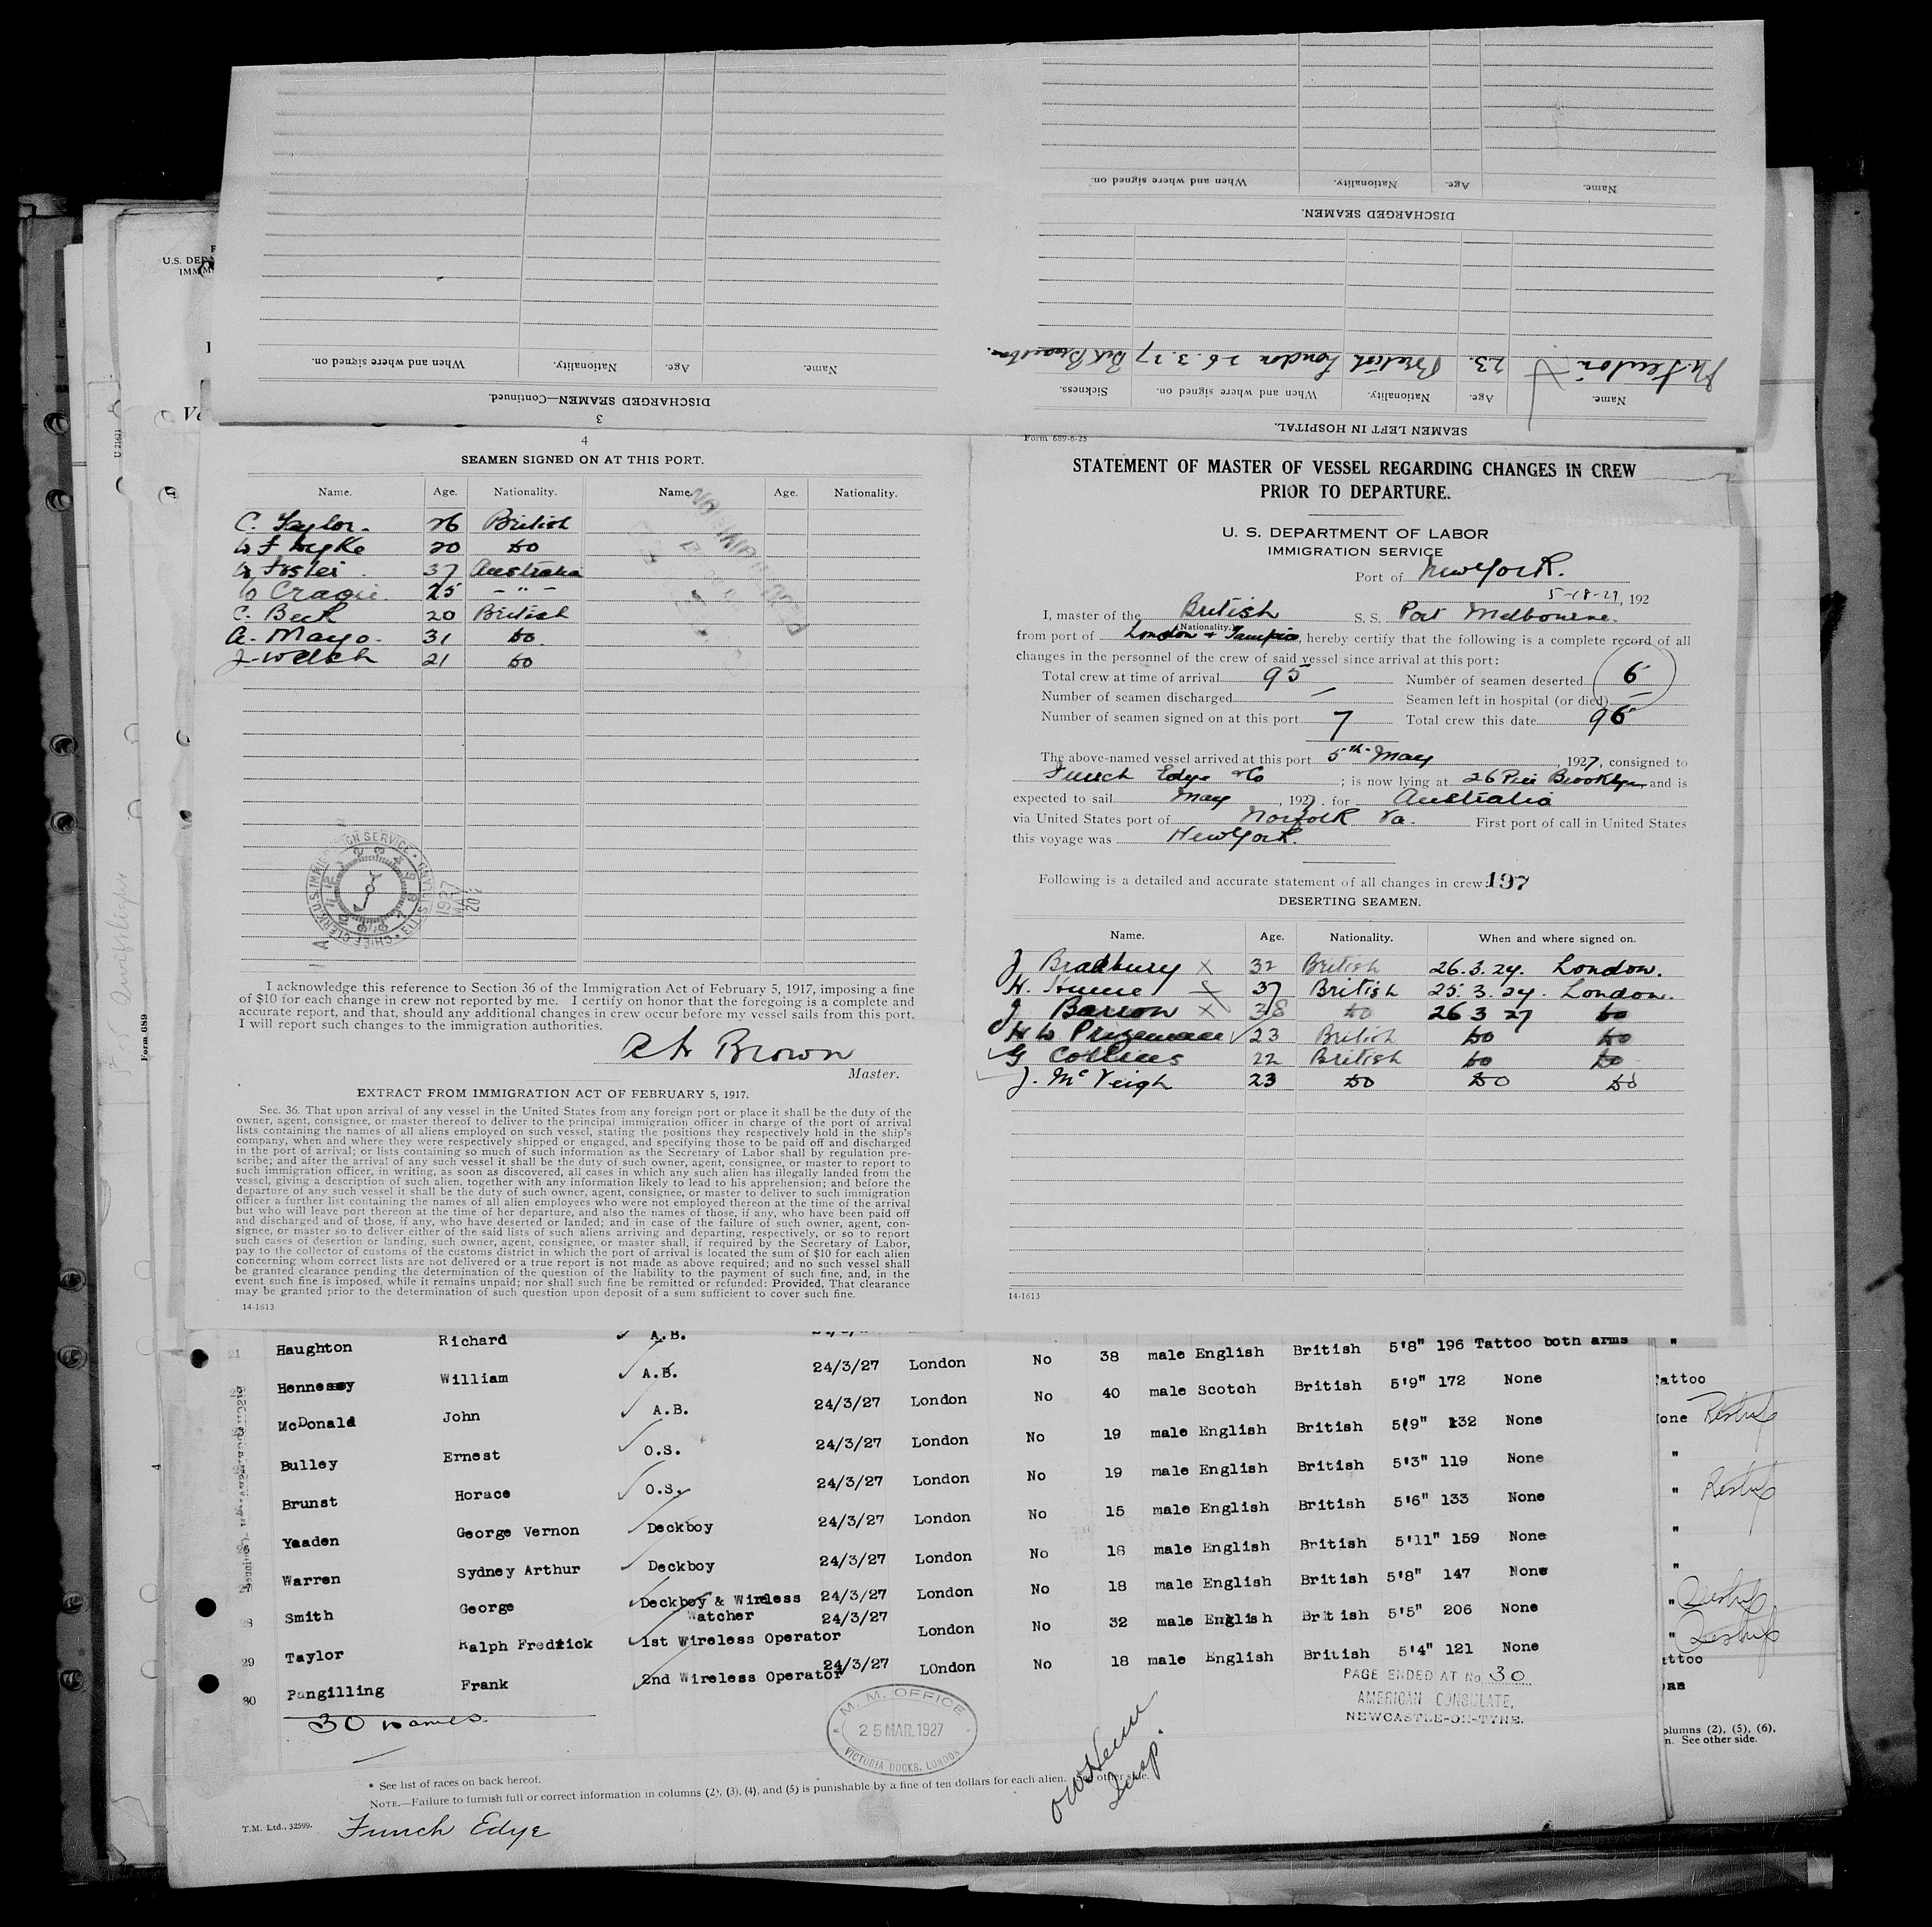 DISCHARGED SEAMEN.
Name. Age. Nationality. When and where signed on.
SEAMEN LEFT IN HOSPITAL.
Name. Age. Nationality. When and where signed on. Sickness.
23. British London 26.3.27
3
DISCHARGED SEAMEN—Continued.
Name. Age. Nationality. When and where signed on.
U.S. DEP
IMM
U 21621
Form 689
4
SEAMEN SIGNED ON AT THIS PORT.
Name. Age. Nationality. Name. Age. Nationality.
C. Taylor. 26 British
W F Wyke 20 do
W Foster. 37 Australia
W Cragie. 25 - " -
C. Beck 20 British
A. Mayo. 31 do
J. Welsh 21 do
1927
MAY
20
I acknowledge this reference to Section 36 of the Immigration Act of February 5, 1917, imposing a fine
of $10 for each change in crew not reported by me. I certify on honor that the foregoing is a complete and
accurate report, and that, should any additional changes in crew occur before my vessel sails from this port,
I will report such changes to the immigration authorities.
A H Brown
Master.
EXTRACT FROM IMMIGRATION ACT OF FEBRUARY 5, 1917.
Sec. 36. That upon arrival of any vessel in the United States from any foreign port or place it shall be the duty of the
owner, agent, consignee, or master thereof to deliver to the principal immigration officer in charge of the port of arrival
lists containing the names of all aliens employed on such vessel, stating the positions they respectively hold in the ship's
company, when and where they were respectively shipped or engaged, and specifying those to be paid off and discharged
in the port of arrival; or lists containing so much of such information as the Secretary of Labor shall by regulation pre-
scribe; and after the arrival of any such vessel it shall be the duty of such owner, agent, consignee, or master to report to
such immigration officer, in writing, as soon as discovered, all cases in which any such alien has illegally landed from the
vessel, giving a description of such alien, together with any information likely to lead to his apprehension; and before the
departure of any such vessel it shall be the duty of such owner, agent, consignee, or master to deliver to such immigration
officer a further list containing the names of all alien employees who were not employed thereon at the time of the arrival
but who will leave port thereon at the time of her departure, and also the names of those, if any, who have been paid off
and discharged and of those, if any, who have deserted or landed; and in case of the failure of such owner, agent, con-
signee, or master so to deliver either of the said lists of such aliens arriving and departing, respectively, or so to report
such cases of desertion or landing, such owner, agent, consignee, or master shall, if required by the Secretary of Labor,
pay to the collector of customs of the customs district in which the port of arrival is located the sum of $10 for each alien
concerning whom correct lists are not delivered or a true report is not made as above required; and no such vessel shall
be granted clearance pending the determination of the question of the liability to the payment of such fine, and, in the
event such fine is imposed, while it remains unpaid; nor shall such fine be remitted or refunded: Provided, That clearance
may be granted prior to the determination of such question upon deposit of a sum sufficient to cover such fine.
14-1613
Form 689-6-25
STATEMENT OF MASTER OF VESSEL REGARDING CHANGES IN CREW
PRIOR TO DEPARTURE.
U. S. DEPARTMENT OF LABOR
IMMIGRATION SERVICE
Port of New York.
5-18-27, 192
I, master of the British S. S. Port Melbourne.
(Nationality.)
from port of London + Tampico, hereby certify that the following is a complete record of all
changes in the personnel of the crew of said vessel since arrival at this port:
Total crew at time of arrival 95 Number of seamen deserted 6
Number of seamen discharged — Seamen left in hospital (or died) —
Number of seamen signed on at this port 7 Total crew this date 96
The above-named vessel arrived at this port 5th May, 1927, consigned to
Funch Edye & Co; is now lying at 26 Pier Brooklyn and is
expected to sail May, 1927. for Australia
via United States port of Norfolk Va. First port of call in United States
this voyage was New York.
Following is a detailed and accurate statement of all changes in crew: 197
DESERTING SEAMEN.
Name. Age. Nationality. When and where signed on.
J Bradbury X 32 British 26.3.27. London.
H. Hume 37 British 25.3.27. London.
J Barron X 38 do 26 3 27 do
H W Prizeman 23 British do do
G Collins 22 British do do
J. McVeigh 23 do do do
14-1613
21 Haughton Richard A.B.
Hennessy William A.B. 24/3/27 London No 38 male English British 5'8" 196 Tattoo both arms "
McDonald John A.B. 24/3/27 London No 40 male Scotch British 5'9" 172 None
Bulley Ernest O.S. 24/3/27 London No 19 male English British 5'9" 132 None
Brunst Horace O.S. 24/3/27 London No 19 male English British 5'3" 119 None "
Yeaden George Vernon Deckboy 24/3/27 London No 15 male English British 5'6" 133 None "
Warren Sydney Arthur Deckboy 24/3/27 London No 18 male English British 5'11" 159 None "
28 Smith George Deckboy & Wireless Watcher 24/3/27 London No 18 male English British 5'8" 147 None "
29 Taylor Ralph Fredrick 1st Wireless Operator 24/3/27 London No 32 male English British 5'5" 206 None "
30 Pangilling Frank 2nd Wireless Operator 24/3/27 LOndon No 18 male English British 5'4" 121 None
30 names.
PAGE ENDED AT No 30
AMERICAN CONSULATE,
NEWCASTLE-ON-TYNE.
M. M. OFFICE
25 MAR. 1927
VICTORIA DOCKS, LONDON
Insp.
* See list of races on back hereof.
NOTE.—Failure to furnish full or correct information in columns (2), (3), (4), and (5) is punishable by a fine of ten dollars for each alien. See other side.
T.M. Ltd., 32599.
Funch Edye
olumns (2), (5), (6),
n. See other side.